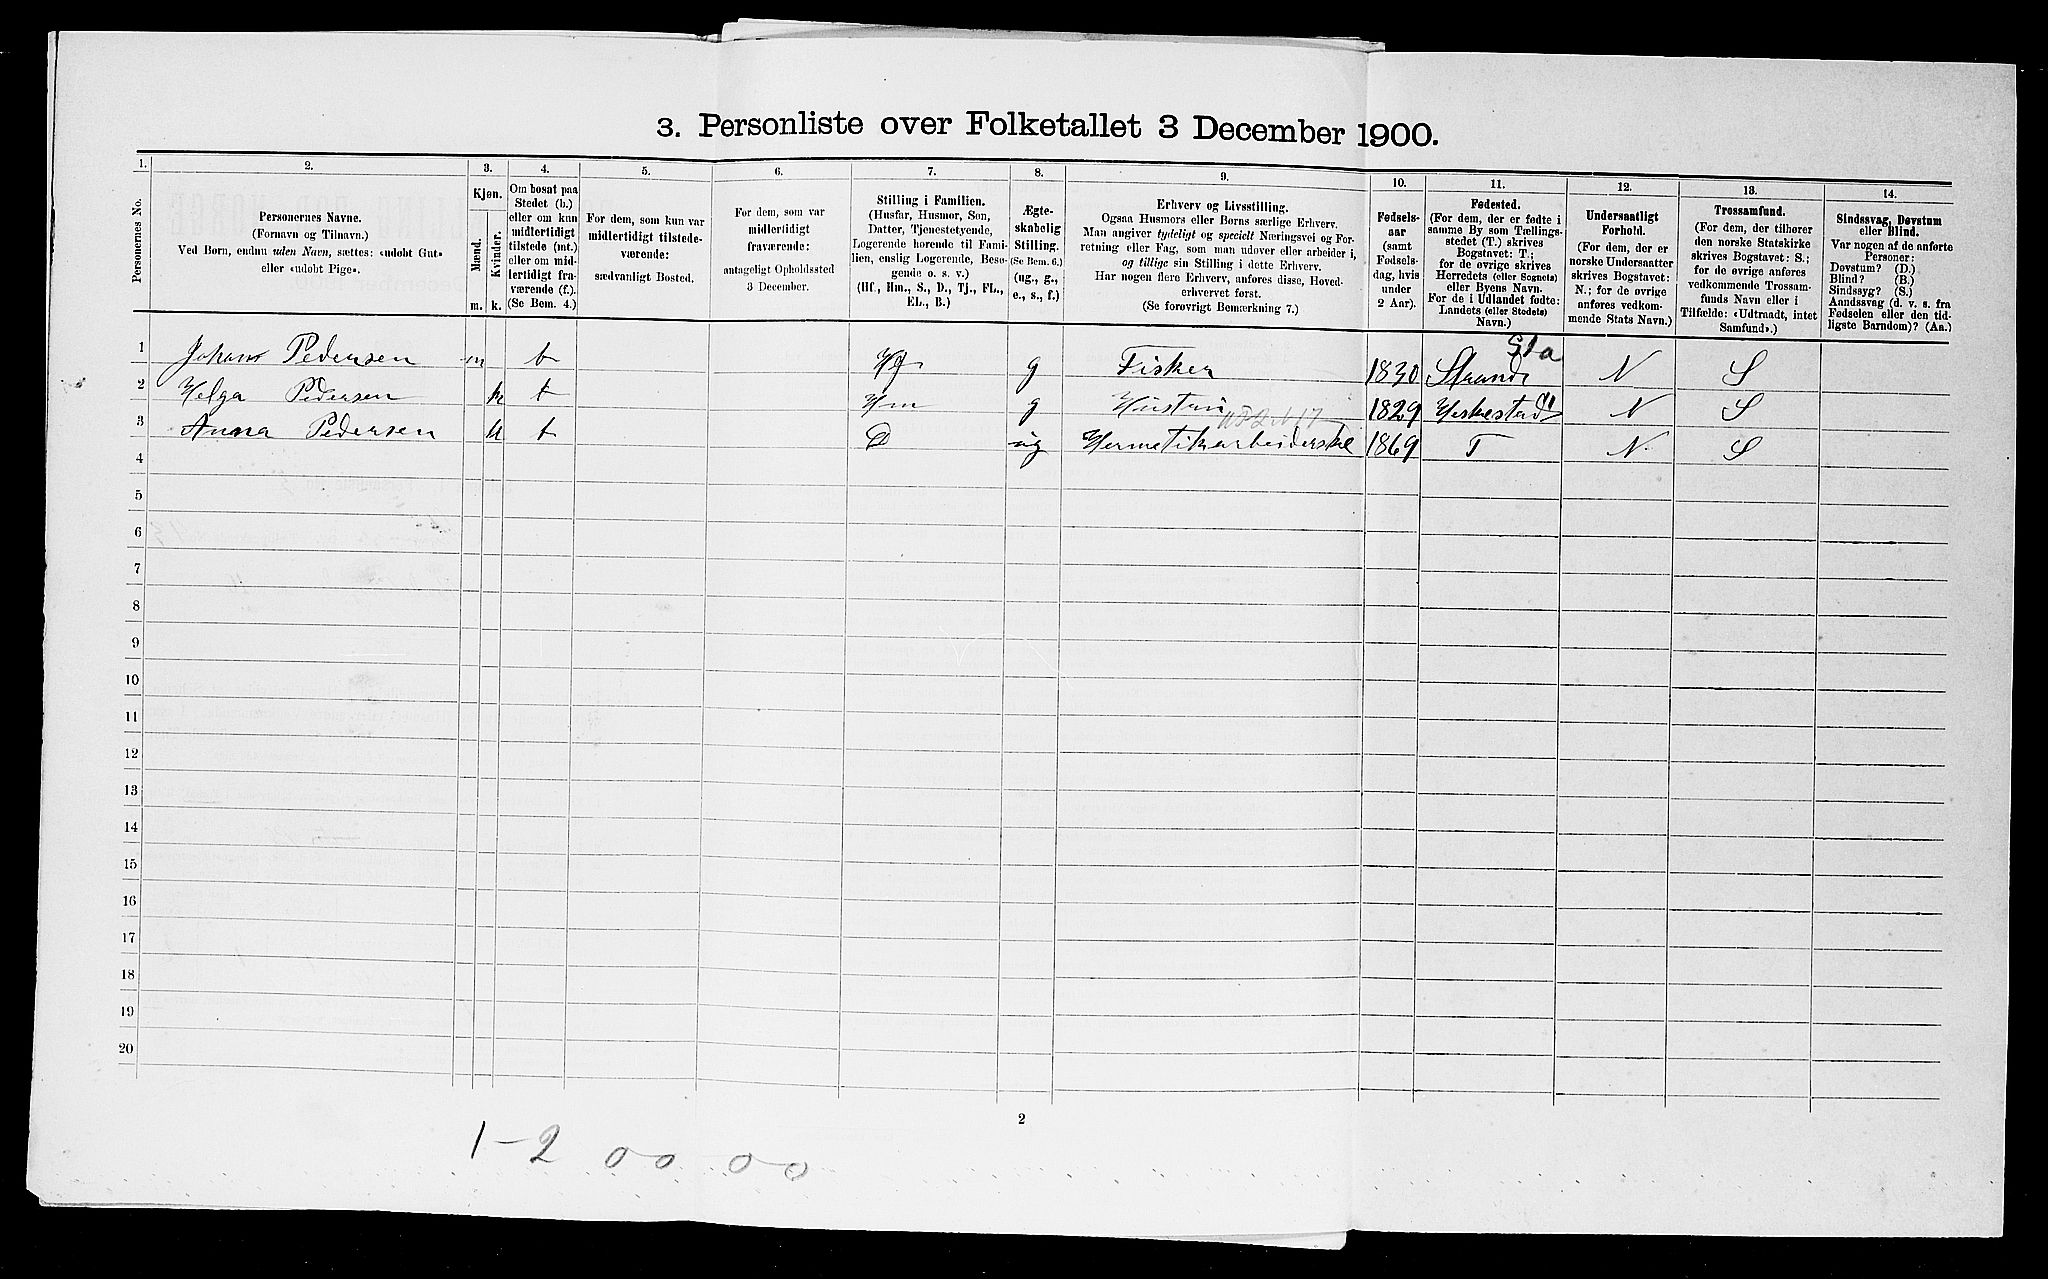 3. Personliste over Folketallet 3 December 1900.
1. 2. 3. 4. 5. 6. 7. 8. 9. 10. 11. 12. 13. 14.
Personernes No.
Personernes Navne.
(Fornavn og Tilnavn.)
Ved Børn, endnu uden Navn, sættes: «udøbt Gut»
eller «udøbt Pige».
Kjøn.
Mænd.
Kvinder.
m. k.
Om bosat paa
Stedet (b.)
eller om kun
midlertidigt
tilstede (mt.)
eller om mid-
lertidigt fra-
værende (f.).
(Se Bem. 4.)
For dem, som kun var
midlertidigt tilstede-
værende:
sædvanligt Bosted.
For dem, som var
midlertidigt
fraværende:
antageligt Opholdssted
3 December.
Stilling i Familien.
(Husfar, Husmor, Søn,
Datter, Tjenestetyende,
Logerende hørende til Fami-
lien, enslig Logerende, Besø-
gende o. s. v.)
(Hf., Hm., S., D., Tj., FL.,
EL., B.)
Ægte-
skabelig
Stilling.
(Se Bem. 6.)
(ug., g.,
e., s., f.)
Erhverv og Livsstilling.
Ogsaa Husmors eller Børns særlige Erhverv.
Man angiver tydeligt og specielt Næringsvei og For-
retning eller Fag, som man udøver eller arbeider i,
og tillige sin Stilling i dette Erhverv.
Har nogen flere Erhverv, anføres disse, Hoved-
erhvervet først.
(Se forøvrigt Bemærkning 7.)
Fødsels-
aar
(samt
Fødsels-
dag, hvis
under
2 Aar).
Fødested.
(For dem, der er fødte i
samme By som Tællings-
stedet (T.) skrives
Bogstavet: T.;
for de øvrige skrives
Herredets (eller Sognets)
eller Byens Navn.
For de i Udlandet fødte:
Landets (eller Stedets)
Navn.)
Undersaatligt
Forhold.
(For dem, der er
norske Undersaatter
skrives Bogstavet:
N.; for de øvrige
anføres vedkom-
mende Stats Navn.)
Trossamfund.
(For dem, der tilhører
den norske Statskirke
skrives Bogstavet: S.;
for de øvrige anføres
vedkommende Trossam-
funds Navn eller i
Tilfælde: «Udtraadt, intet
Samfund».)
Sindssvag, Døvstum
eller Blind.
Var nogen af de anførte
Personer:
Døvstum? (D.)
Blind? (B.)
Sindssyg? (S.)
Aandssvag (d. v. s. fra
Fødselen eller den tid-
ligste Barndom)? (Aa.)
1 Johan Pedersen m b Hf g Fisker 1830 Strand N S
2 Helga Pedersen k b Hm g Hustru 1829 Heskestad N S
3 Anna Pedersen k b D ug Hermetikarbeiderske 1869 T N S
4
5
6
7
8
9
10
11
12
13
14
15
16
17
18
19
20
2
1-2 00 00